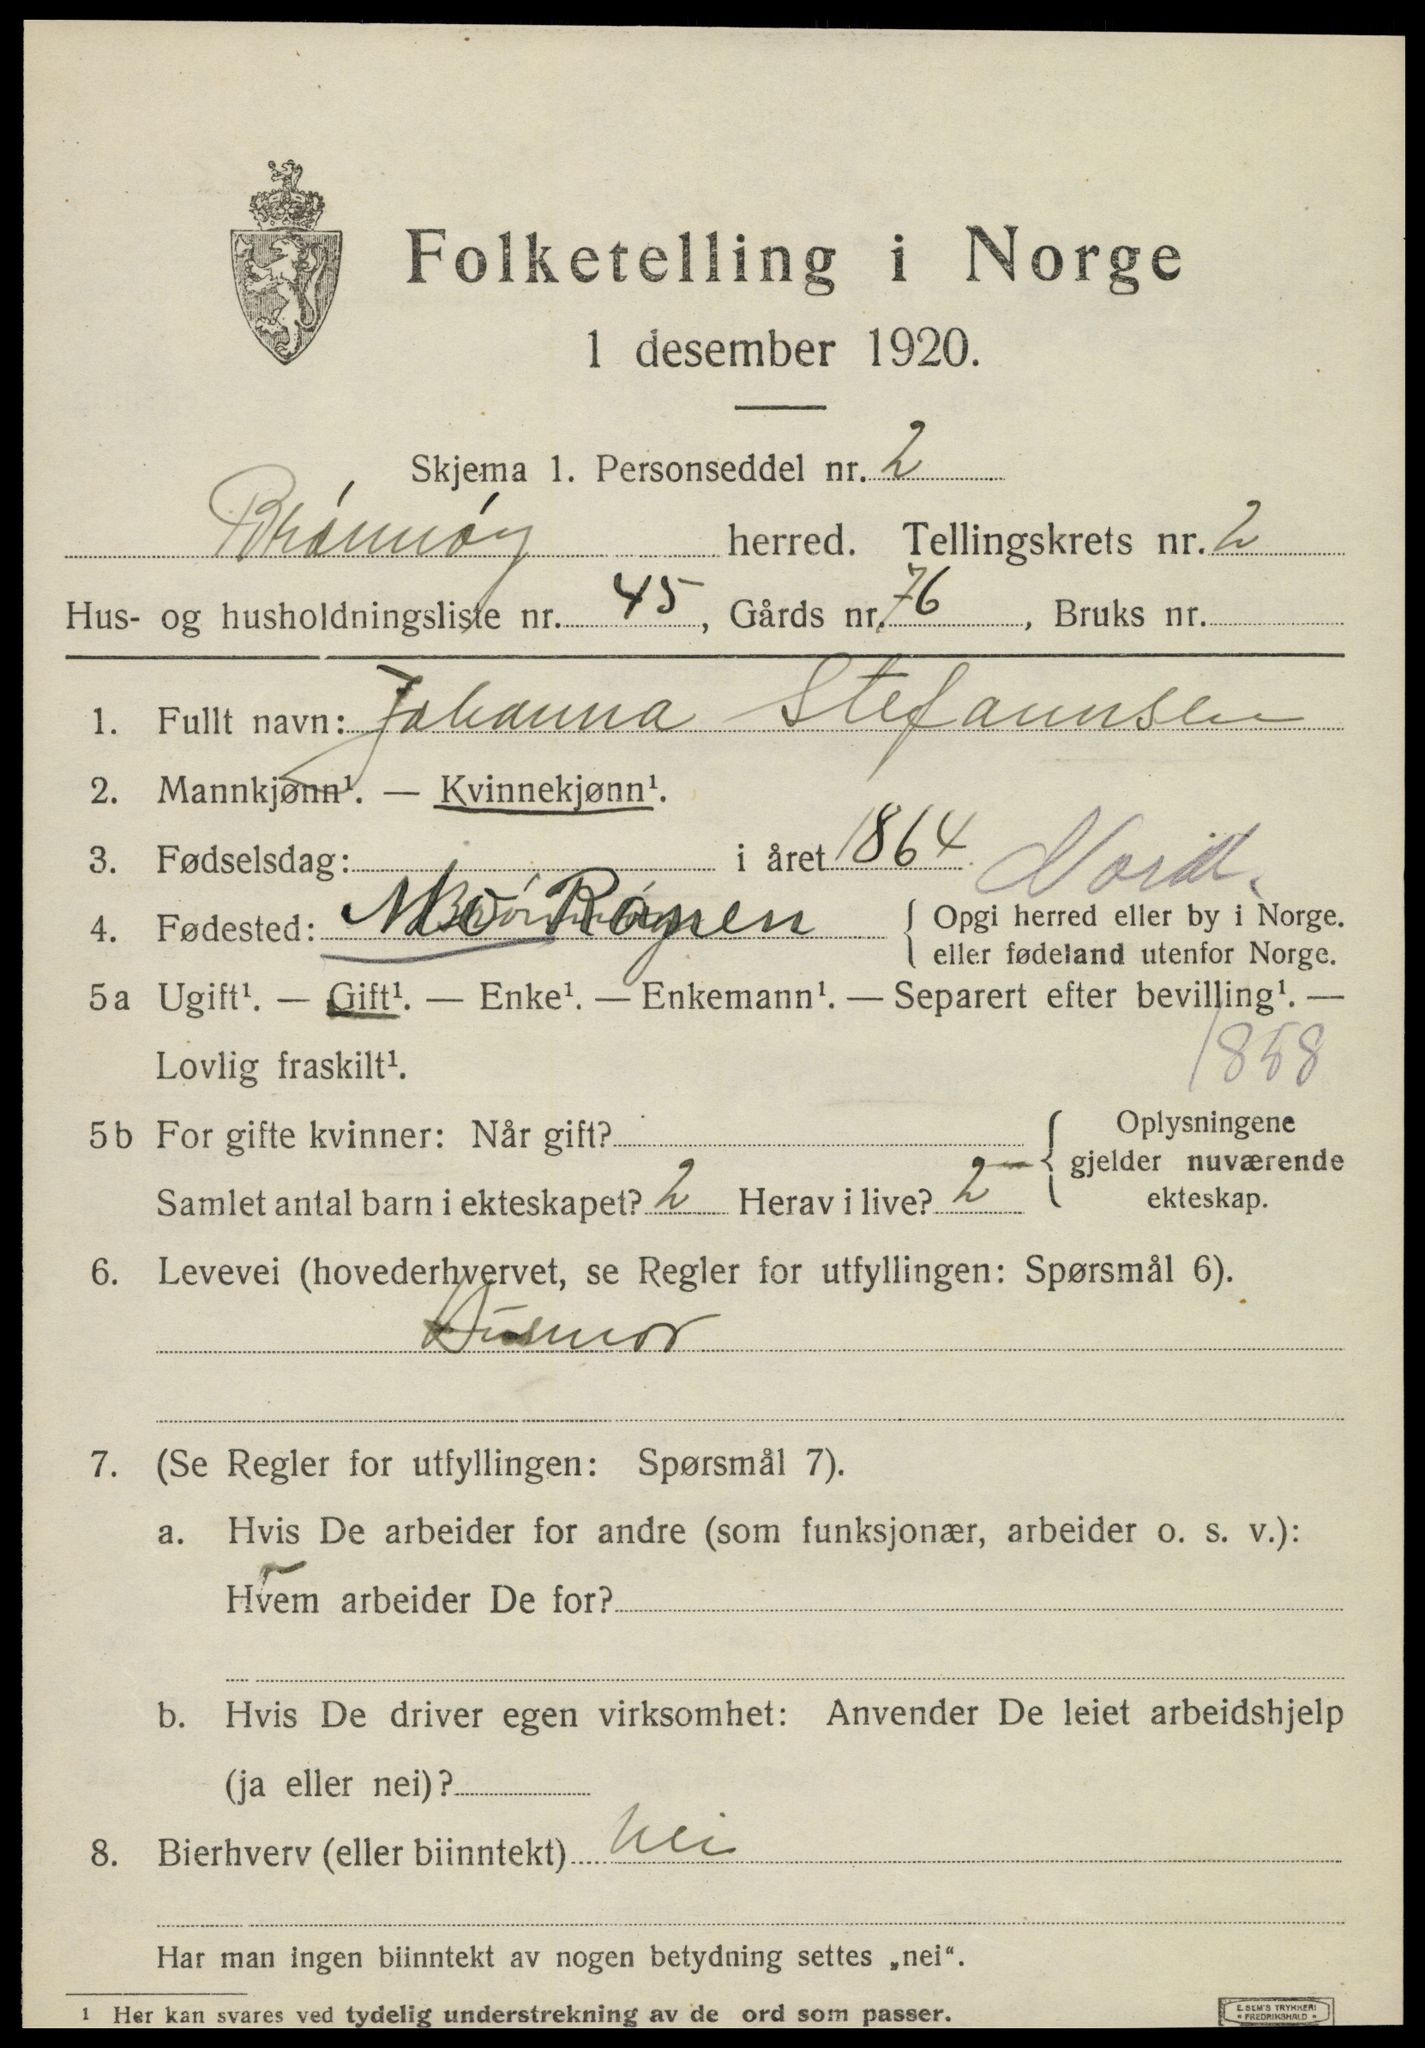 Folketelling i Norge
1 desember 1920.
Skjema 1. Personseddel nr. 2
Brønnøy herred. Tellingskrets nr. 2
Hus- og husholdningsliste nr. 45, Gårds nr. 76, Bruks nr.
1. Fullt navn: Johanna Stefannsen
2. Mannkjønn¹. — Kvinnekjønn¹.
3. Fødselsdag: i året 1864 Nordl.
4. Fødested: Mo Ranen { Opgi herred eller by i Norge.
eller fødeland utenfor Norge.
5a Ugift¹. — Gift¹. — Enke¹. — Enkemann¹. — Separert efter bevilling¹. —
Lovlig fraskilt¹. 1858
5b For gifte kvinner: Når gift? { Oplysningene
gjelder nuværende
Samlet antal barn i ekteskapet? 2 Herav i live? 2 ekteskap.
6. Levevei (hovederhvervet, se Regler for utfyllingen: Spørsmål 6).
Husmor
7. (Se Regler for utfyllingen: Spørsmål 7).
a. Hvis De arbeider for andre (som funksjonær, arbeider o. s. v.):
Hvem arbeider De for?
b. Hvis De driver egen virksomhet: Anvender De leiet arbeidshjelp
(ja eller nei)?
8. Bierhverv (eller biinntekt) Nei
Har man ingen biinntekt av nogen betydning settes „nei“.
¹ Her kan svares ved tydelig understrekning av de ord som passer.
E. SEM'S TRYKKERI
* FREDRIKSHALD *